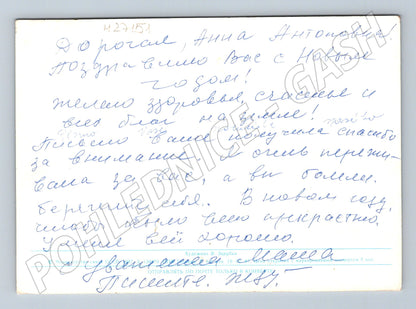 427151
Дорогая, Анна Антоновна!
Поздравляю Вас с Новым
годом!
желаю здоровья, счастья и
всех благ на земле!
Письмо Ваше получила спасибо
за внимание. Я очень пережи-
вала за Вас, а вы болели.
берегите себя. В новом году,
чтобы было всё прекрасно.
У меня всё хорошо.
с уважением Маша
Пишите. Жду.
POHLEDNICE - GASH